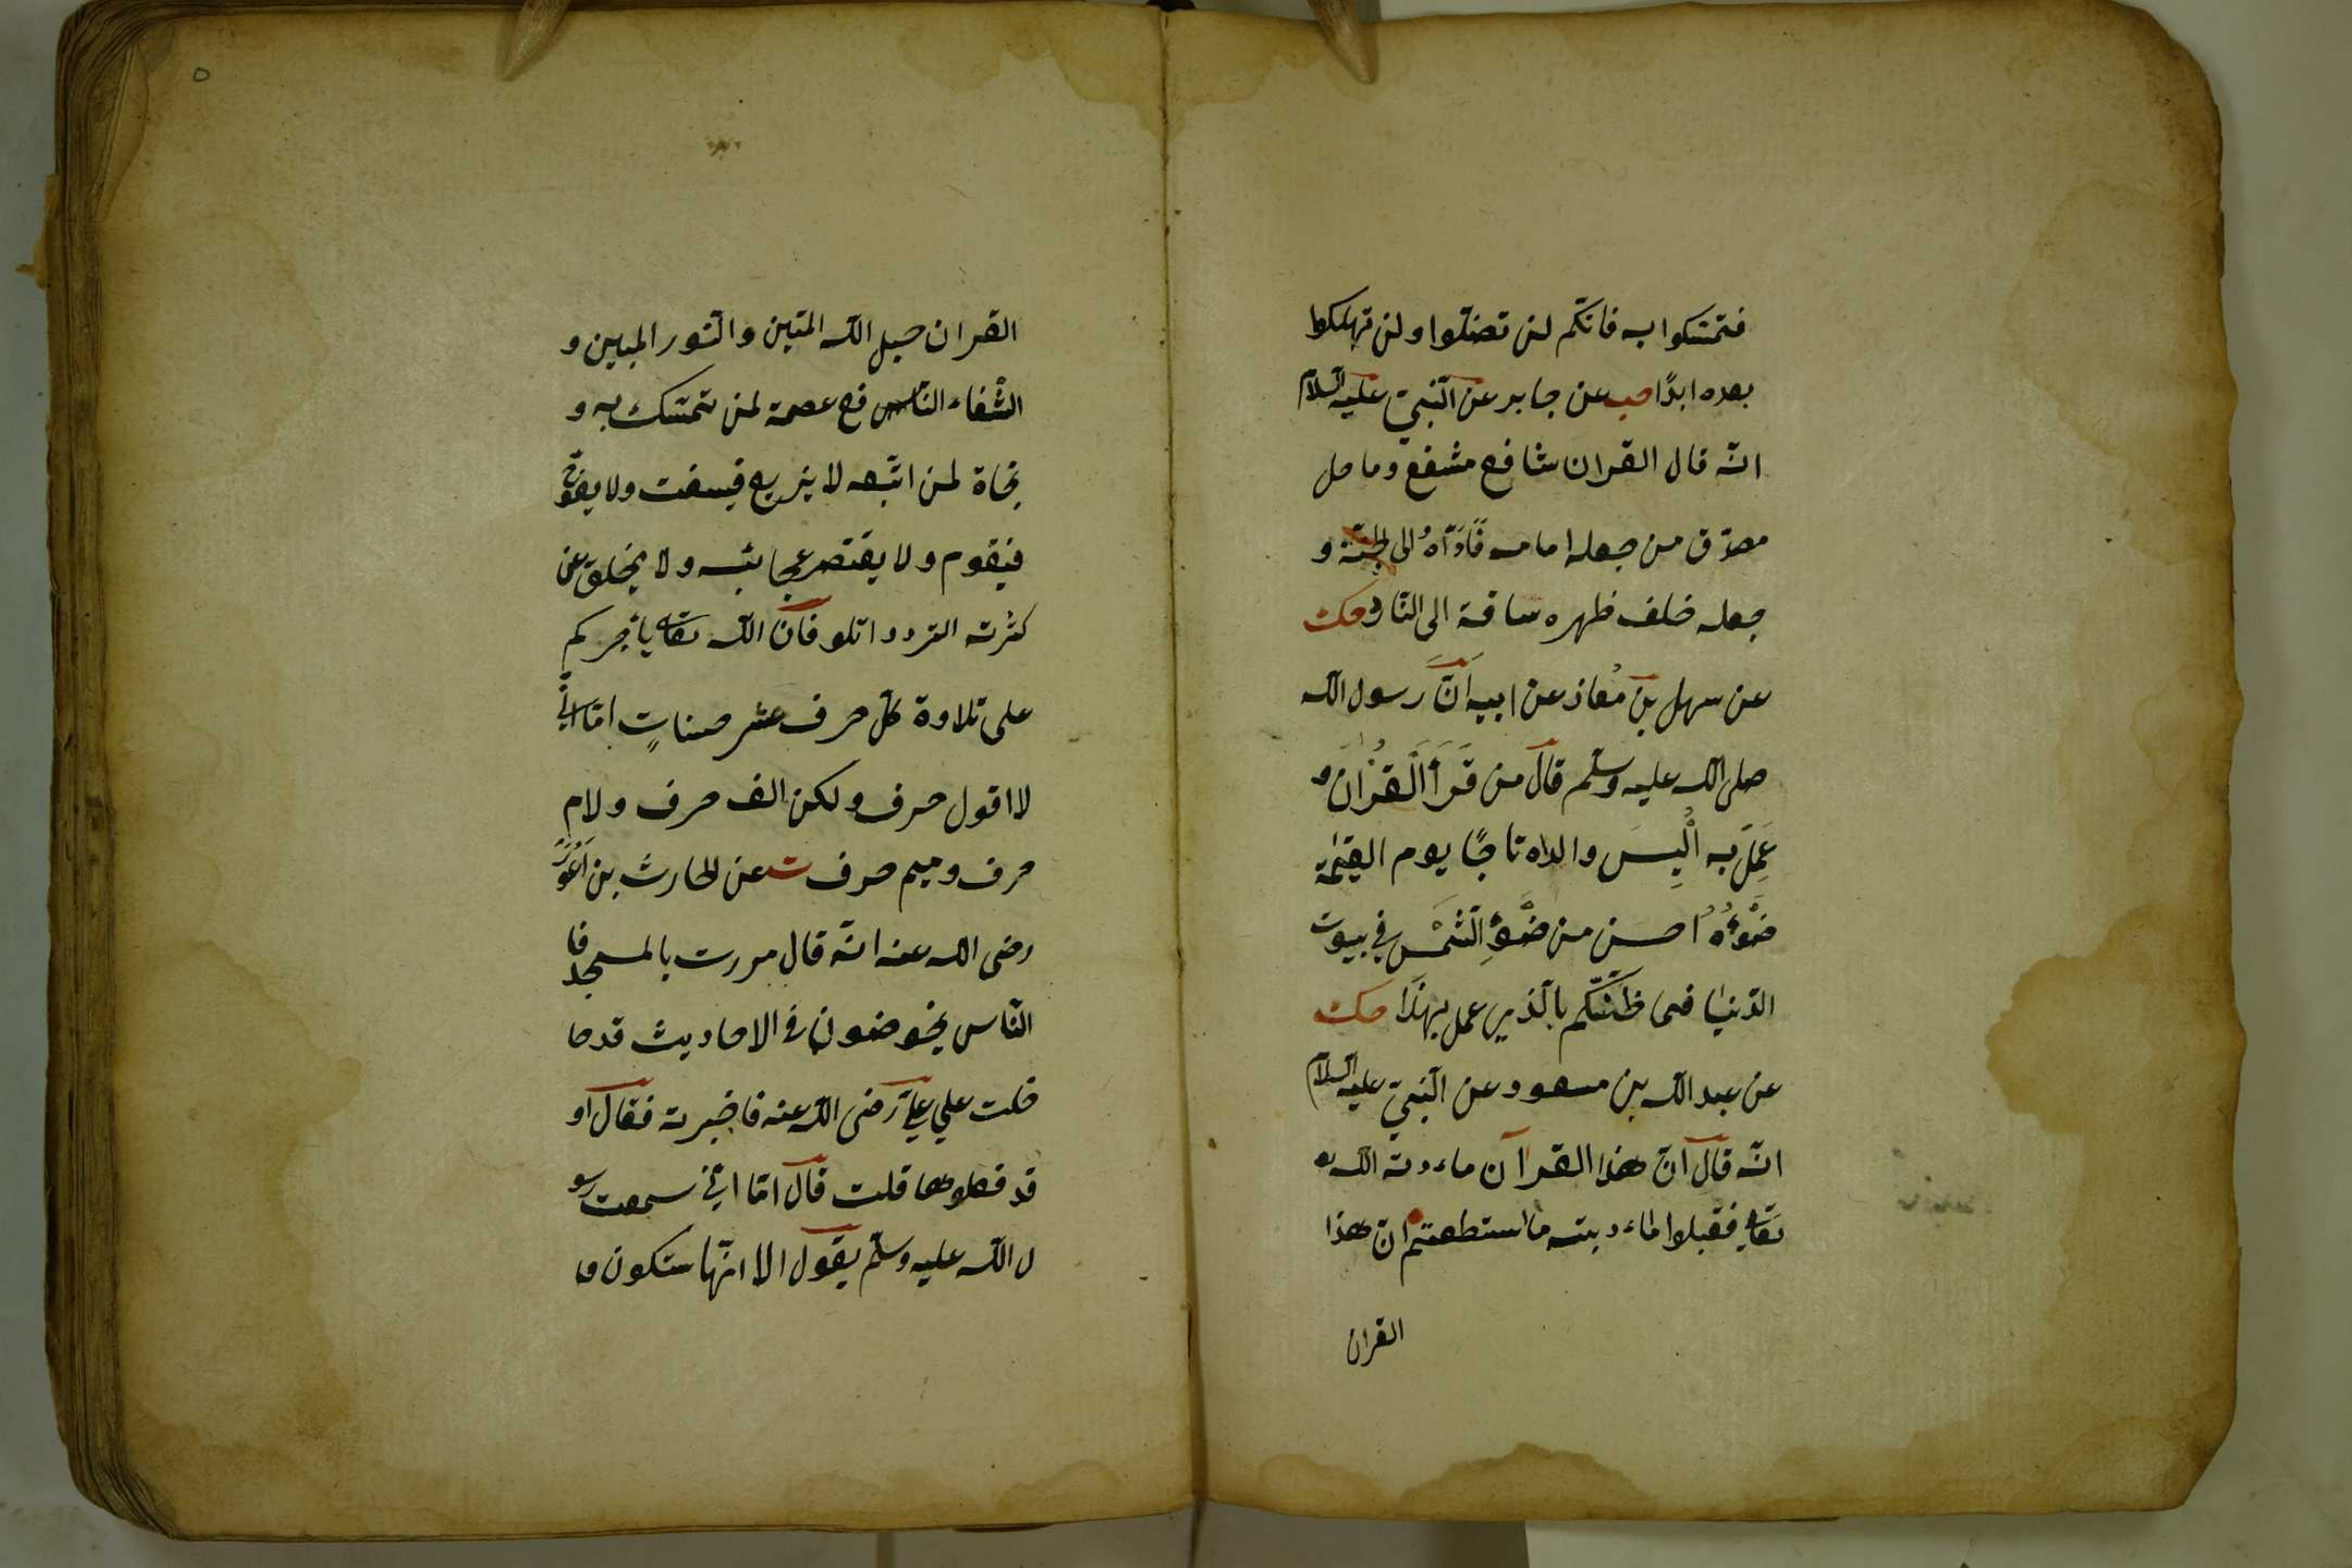 فتمسّكوا به فانّكم لن تضلّوا ولن تهلكوا
بعده ابدًا حب عن جابر عن النّبيّ عليه السلام
انّه قال القران شافع مشفع وماحل
مصدّق من جعله امامه قَادَهُ الى الجنّة و
جعله خلف ظهره ساقة الى النّار حك
عن سهل بن مُعاذ عن ابيه انّ رسول الله
صلى الله عليه وسلّم قال من قَرَأَ الْقُرْانَ و
عَمِلَ به اُلْبِسَ والداه تاجًا يوم القيٰمة
ضَوْءُهُ احسن من ضَوْءِ الشَّمْسِ في بيوت
الدّنيا فما ظنّكم بالّذي عمل بهذا حك
عن عبد الله بن مسعود عن النّبيّ عليه السلام
انّه قال انّ هذا القرآن ماءدبة الله
تعالى فقبلوا ماءدبته ما استطعتم انّ هذا
القران
٥
القران حبل الله المتين والنّور المبين و
الشّفاء النّافع عصمة لمن تمسّك به و
نجاة لمن اتّبعه لا يزيع فيسفت ولا يعوّج
فيقوم ولا يقتصر عجائبه ولا يخلق عن
كثرته التردد اتلو فانّ الله تعالى يأجركم
على تلاوة كلّ حرف عشر حسناتٍ امّا انّي
لا اقول حرف ولكن الف حرف ولام
حرف وميم حرف ت عن الحارث بن اَعْوَر
رضى الله عنه انّه قال مررت بالمسجد فا
النّاس يخوضون في الاحاديث قدحا
خلت علي عليّ رضى الله عنه فاخبرته فقال او
قد فعلوها قلت قال امّا انّي سمعت رسو
ل الله عليه وسلّم يقول الا انّها ستكون